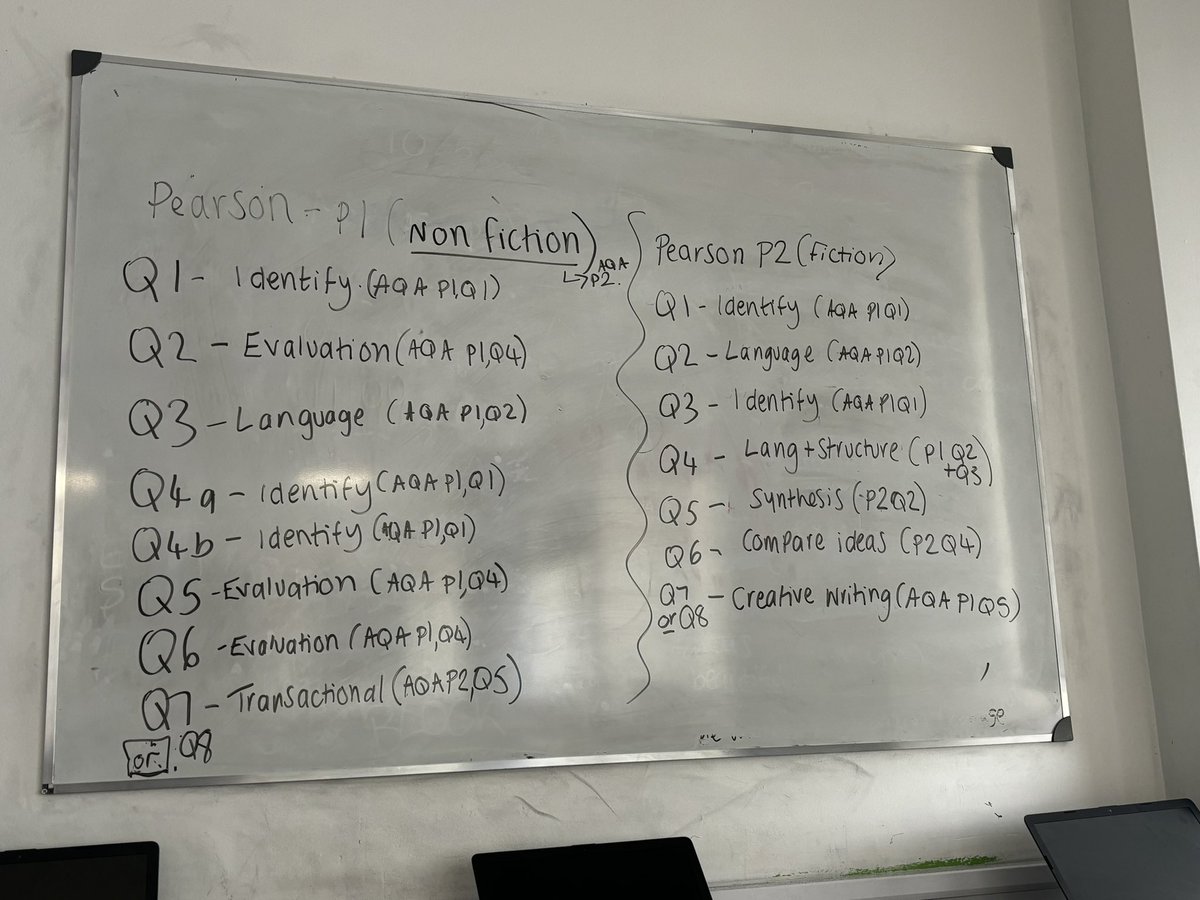 Pearson - P1 (Non fiction)
↳ AQA P2.
Q1 - Identify. (AQA P1,Q1)
Q2 - Evaluation (AQA P1,Q4)
Q3 - Language (AQA P1,Q2)
Q4a - Identify (AQA P1,Q1)
Q4b - Identify (AQA P1,Q1)
Q5 - Evaluation (AQA P1,Q4)
Q6 - Evaluation (AQA P1,Q4)
Q7 - Transactional (AQA P2,Q5)
or. Q8
Pearson P2 (fiction)
Q1 - Identify (AQA P1Q1)
Q2 - Language (AQA P1Q2)
Q3 - Identify (AQA P1Q1)
Q4 - Lang + Structure (P1 Q2
+Q3)
Q5 - Synthesis (P2Q2)
Q6 - Compare ideas (P2Q4)
Q7 - Creative writing (AQA P1Q5)
or Q8